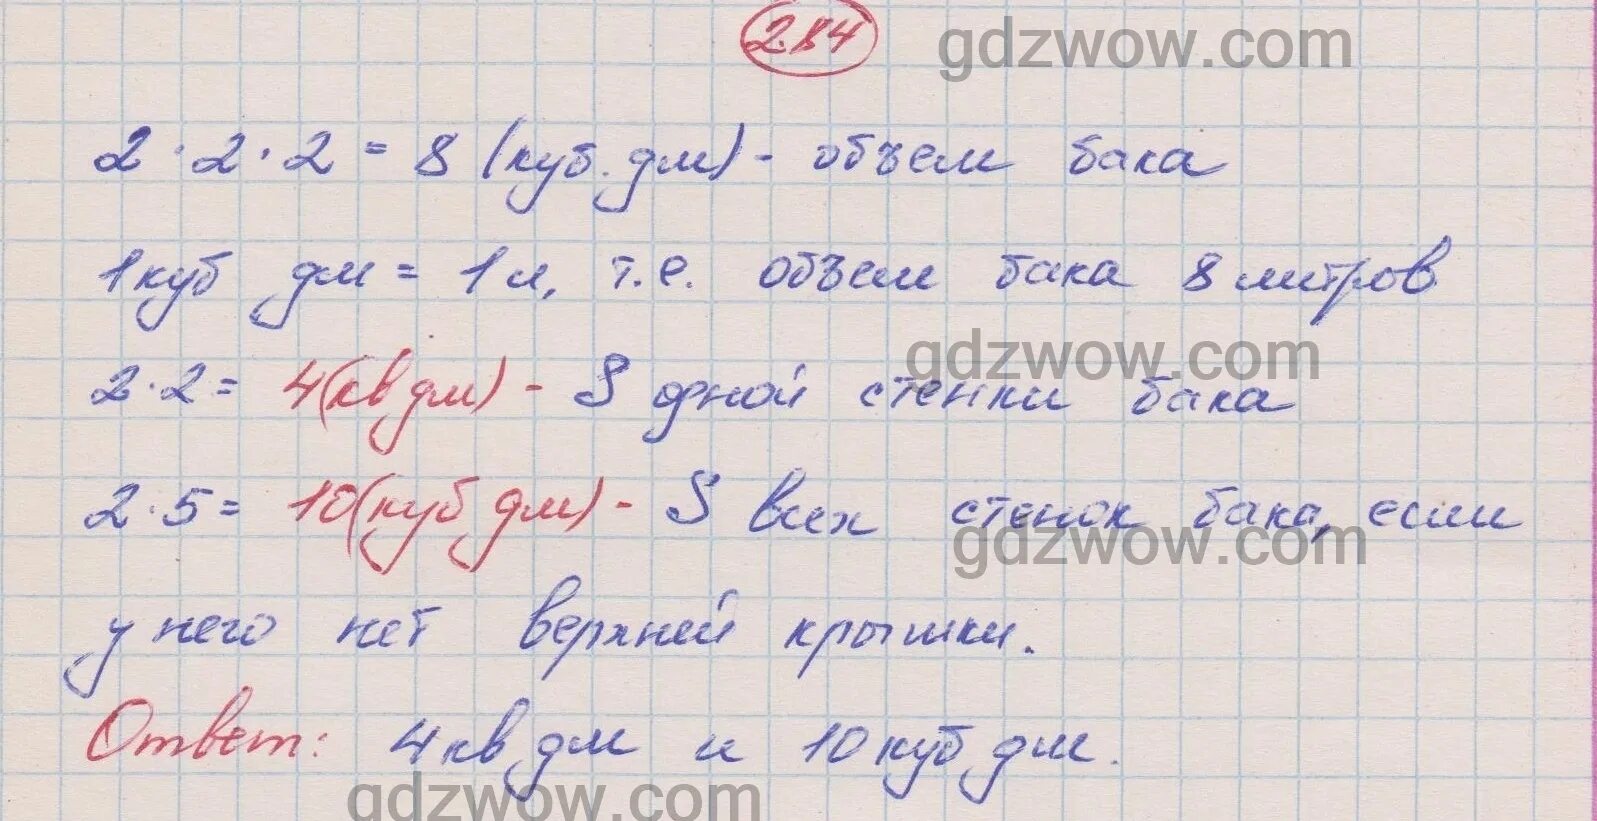 284 gdzwow.com
2·2·2=8 (куб.дм)- объем бака
1куб дм = 1л, т.е. объем бака 8 литров
gdzwow.com
2·2= 4(кв дм) - S одной стенки бака
2·5= 10(куб дм) - S всех стенок бака, если
gdzwow.com
у него нет верхней крышки.
Ответ: 4 кв дм и 10 куб дм.
gdzwow.com